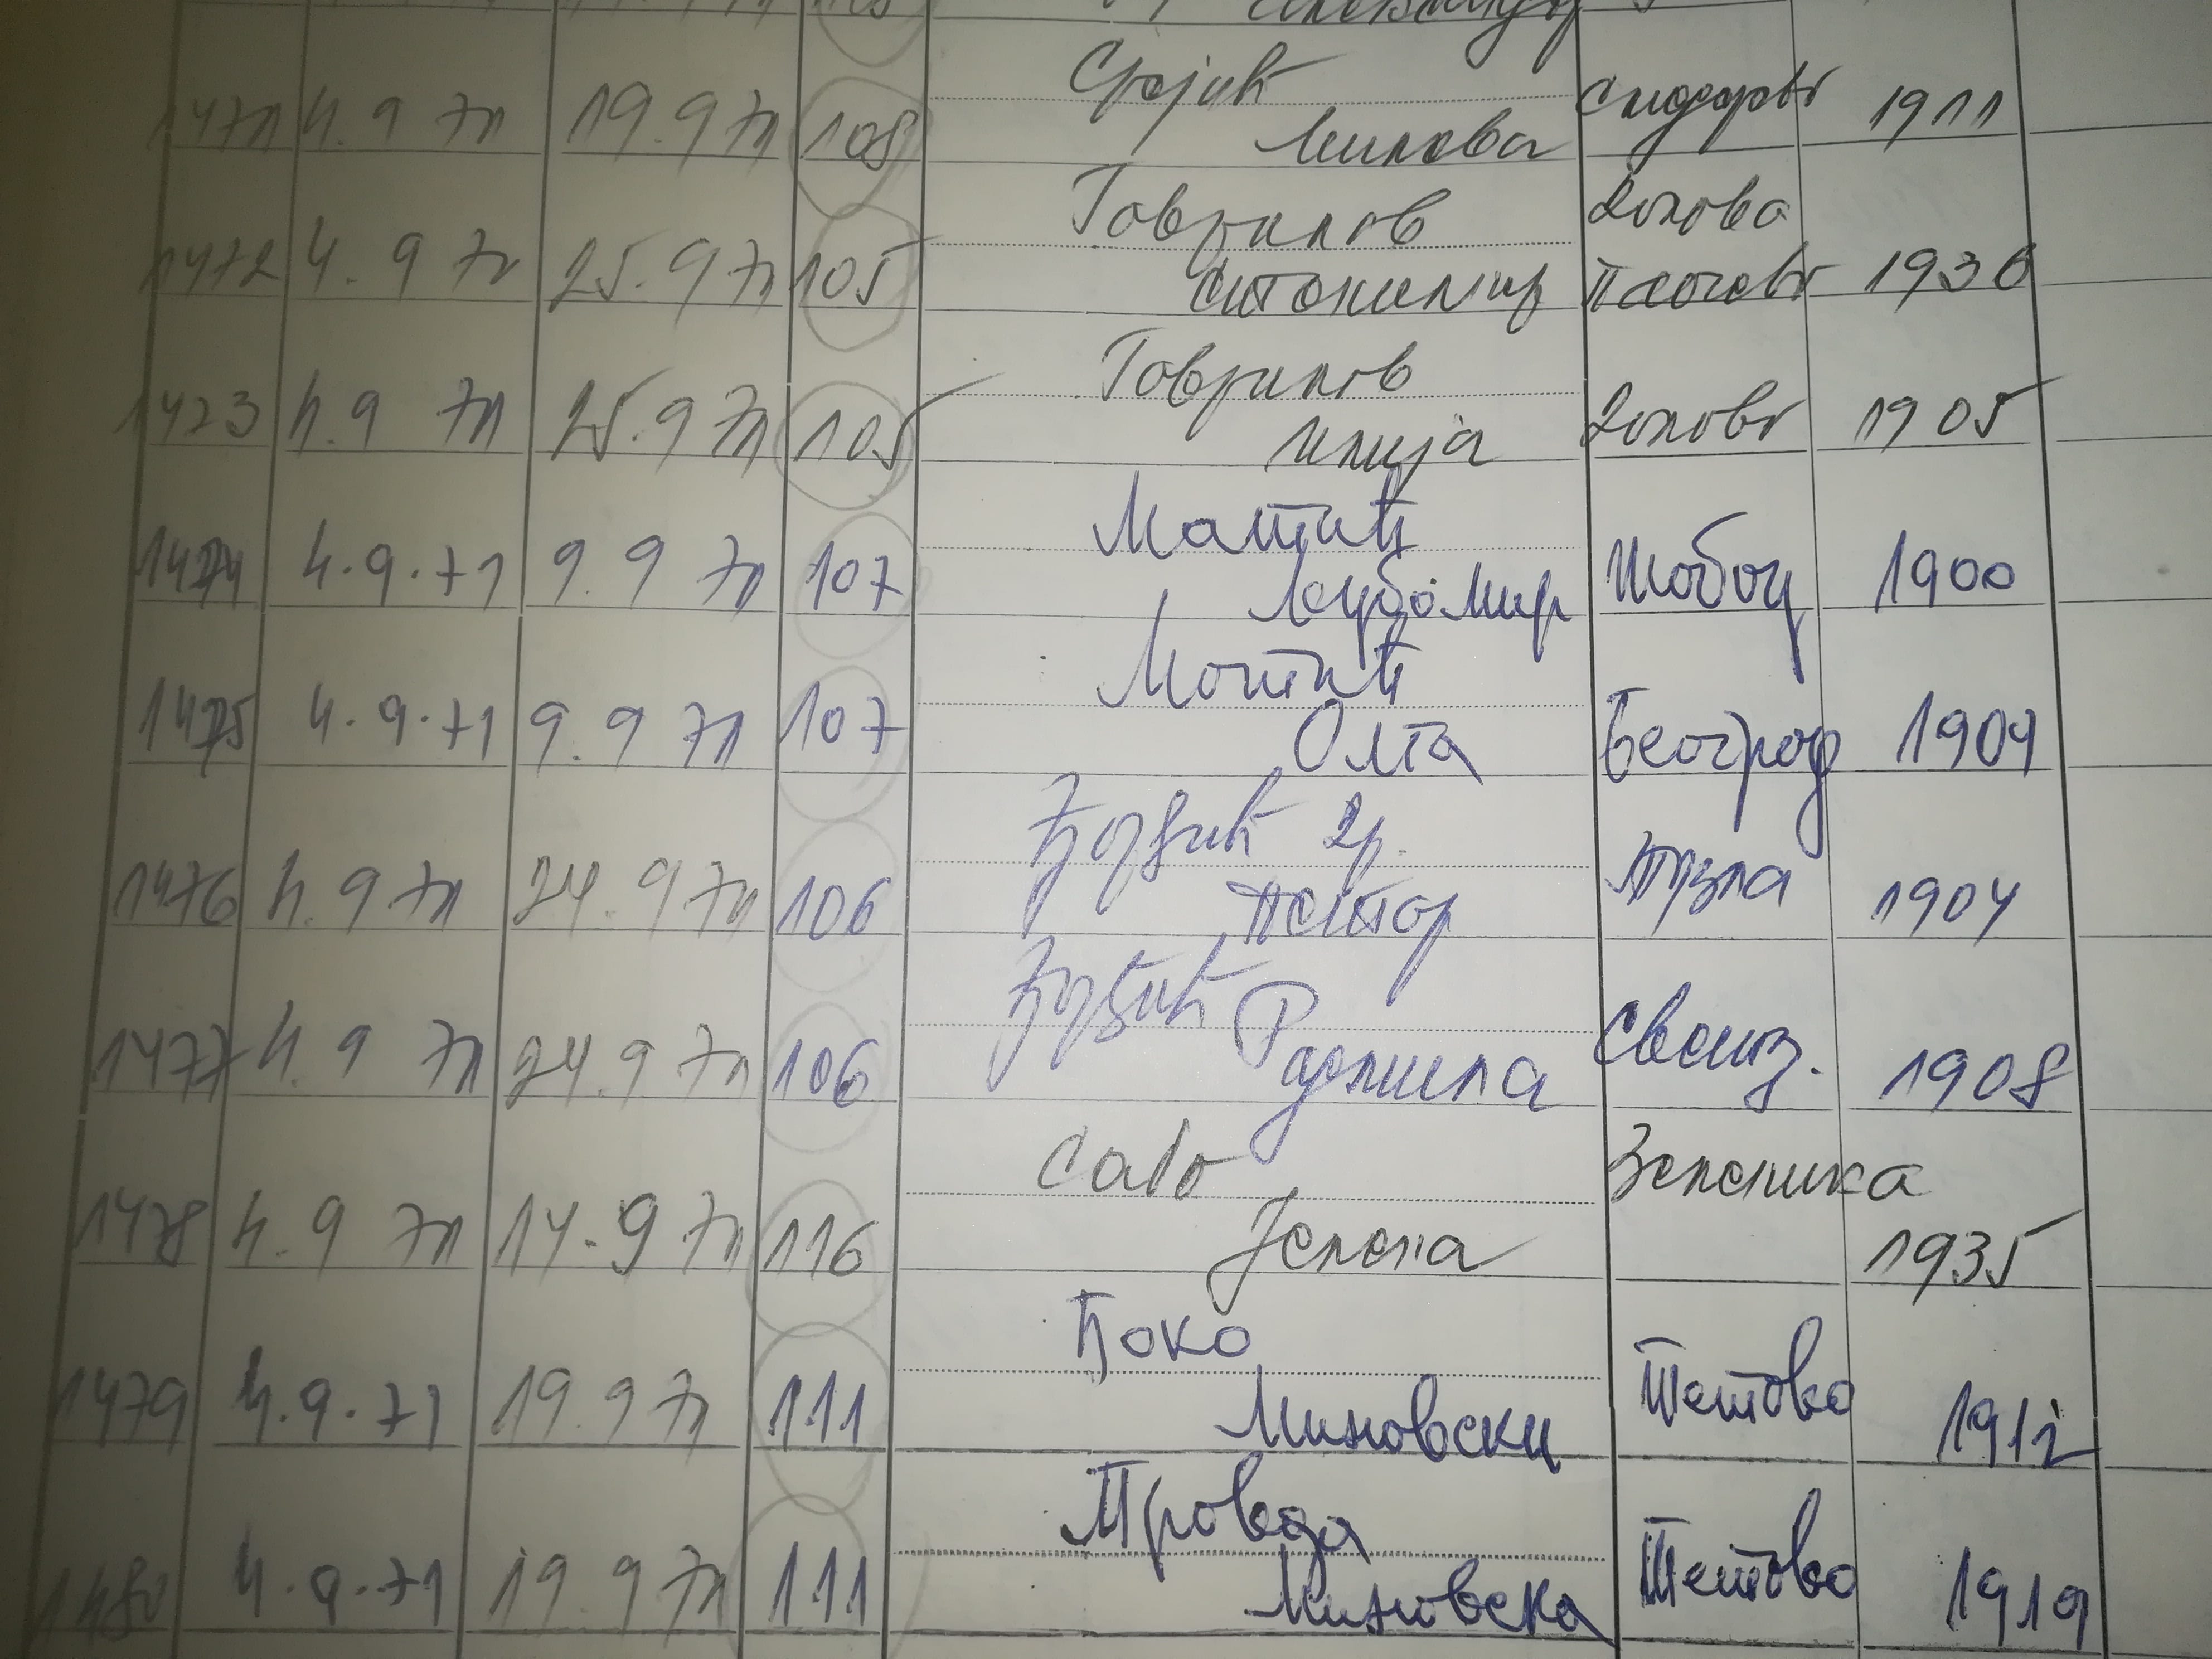 1471 4.9 71 19.9 71 108
Милева 1911
Гаврилов Долова
1472 4.9 71 25.9 71 105 Стонимир 1936
Гаврилов
1473 4.9 71 25.9 71 105 Илија Долово 1905
Матић
1474 4.9.71 9.9 71 107 Љубомир Шабац 1900
Матић
1475 4.9.71 9.9 71 107 Олга Београд 1904
Ђорђић др.
1476 4.9 71 24.9 71 106 Петар Тузла 1904
Ђорђић
1477 4.9 71 24.9 71 106 Радмила 1908
Сабо Зеленика
1478 4.9 71 14.9 71 116 Јелена 1935
Ђоко
1479 4.9.71 19.9 71 111 Миновски Тетово 1912
Правда
1480 4.9.71 19.9 71 111 Миновска Тетово 1919